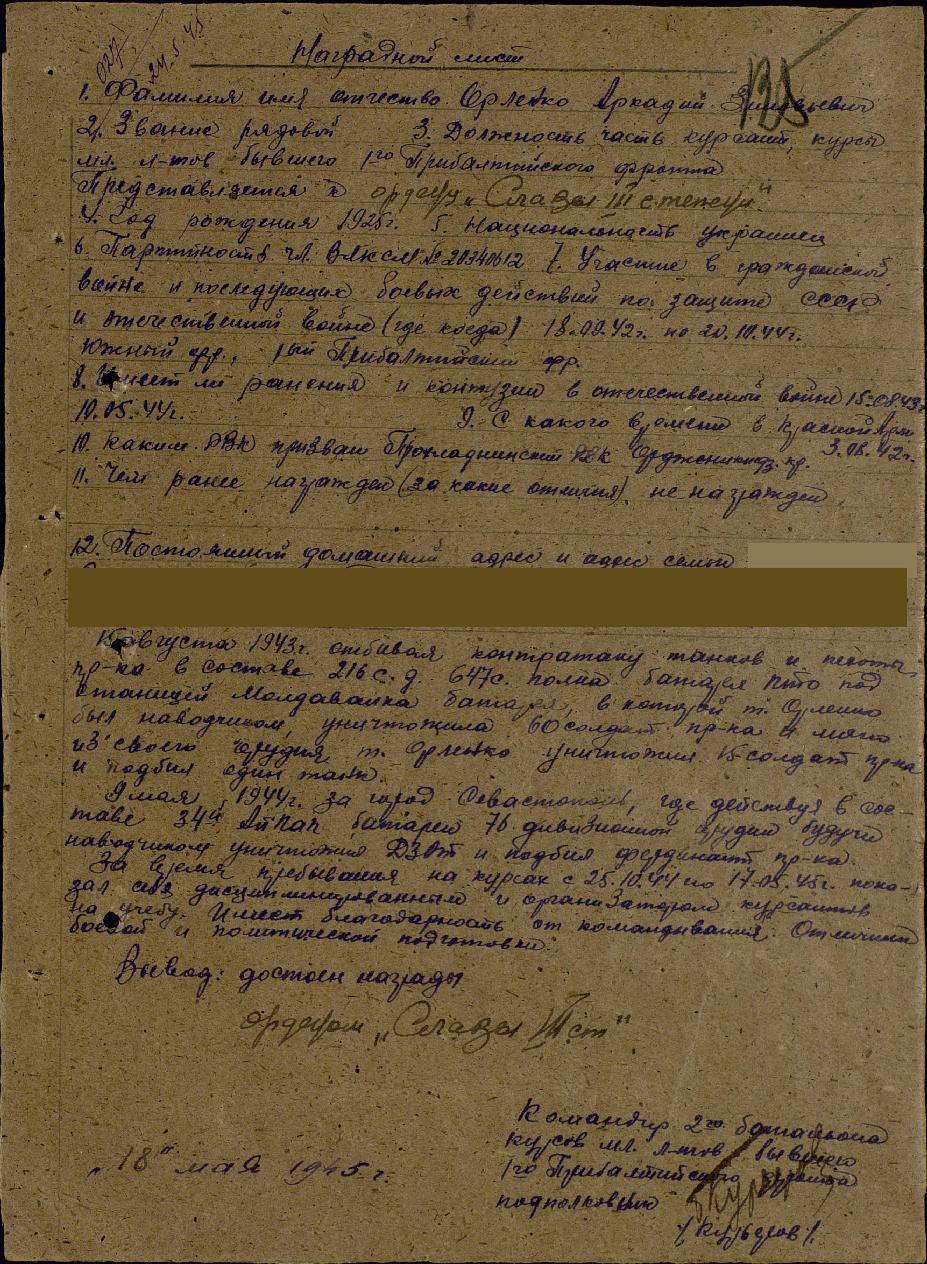 027
24.5.45
Наградной лист
1. Фамилия имя отчество Орленко Аркадий Зиновьевич
2. Звание рядовой 3. Должность часть курсант, курсы
мл. л-тов бывшего 1го Прибалтийского фронта
Представляется к ордену „Славы III степени"
4. Год рождения 1925г. 5. Национальность украинец
6. Партийность чл. ВЛКСМ № 20340612 7. Участие в гражданской
войне и последующих боевых действий по защите СССР
и отечественной войне (где когда) 18.09.42г. по 20.10.44г.
Южный фр., 1ый Прибалтийский фр.
8. Имеет ли ранения и контузии в отечественной войне 15.08.43г
10.05.44г. 9. С какого времени в Красной Арм
3.08.42г.
10. Каким РВК призван Прохладнинский РВК Орджоникидз. кр.
11. Чем ранее награжден (за какие отличия) не награжден
12. Постоянный домашний адрес и адрес семьи
15 августа 1943г. отбивая контратаку танков и пехоты
пр-ка в составе 216 с.д. 647 с. полка батарея ПТО под
станицей Молдаванка батарея, в которой т. Орленко
был наводчиком, уничтожила 60 солдат пр-ка и
из своего орудия т. Орленко уничтожил 15 солдат пр-ка
и подбил один танк.
9 мая 1944г. за город Севастополь, где действуя в сос-
таве 34й батареи 76 дивизионной орудий будучи
наводчиком уничтожил ДЗОт и подбил фердинант пр-ка.
За время пребывания на курсах с 25.10.44 по 17.05.45г. пока-
зал себя дисциплинированным и организатором курсантов
на учебу. Имеет благодарность от командывания. Отличник
боевой и политической подготовки.
Вывод: достоин награды
орденом „Славы III ст"
Командир 2го батальона
курсов мл. л-тов бывшего
1го Прибалтийского фронта
подполковник
„18" мая 1945г.